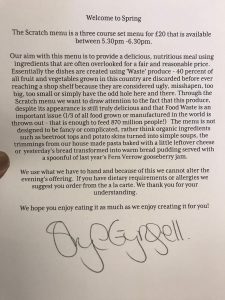 Welcome to Spring
The Scratch menu is a three course set menu for £20 that is available
between 5.30pm -6.30pm.
Our aim with this menu is to provide a delicious, nutritional meal using
ingredients that are often overlooked for a fair and reasonable price.
Essentially the dishes are created using 'Waste' produce - 40 percent of
all fruit and vegetables grown in this country are discarded before ever
reaching a shop shelf because they are considered ugly, misshapen, too
big, too small or simply have the odd hole here and there. Through the
Scratch menu we want to draw attention to the fact that this produce,
despite its appearance is still truly delicious and that Food Waste is an
important issue (1/3 of all food grown or manufactured in the world is
thrown out - that is enough to feed 870 million people!) The menu is not
designed to be fancy or complicated, rather think organic ingredients
such as beetroot tops and potato skins turned into simple soups, the
trimmings from our house made pasta baked with a little leftover cheese
or yesterday's bread transformed into warm bread pudding served with
a spoonful of last year's Fern Verrow gooseberry jam.
We use what we have to hand and because of this we cannot alter the
evening's offering. If you have dietary requirements or allergies we
suggest you order from the a la carte. We thank you for your
understanding.
We hope you enjoy eating it as much as we enjoy creating it for you!